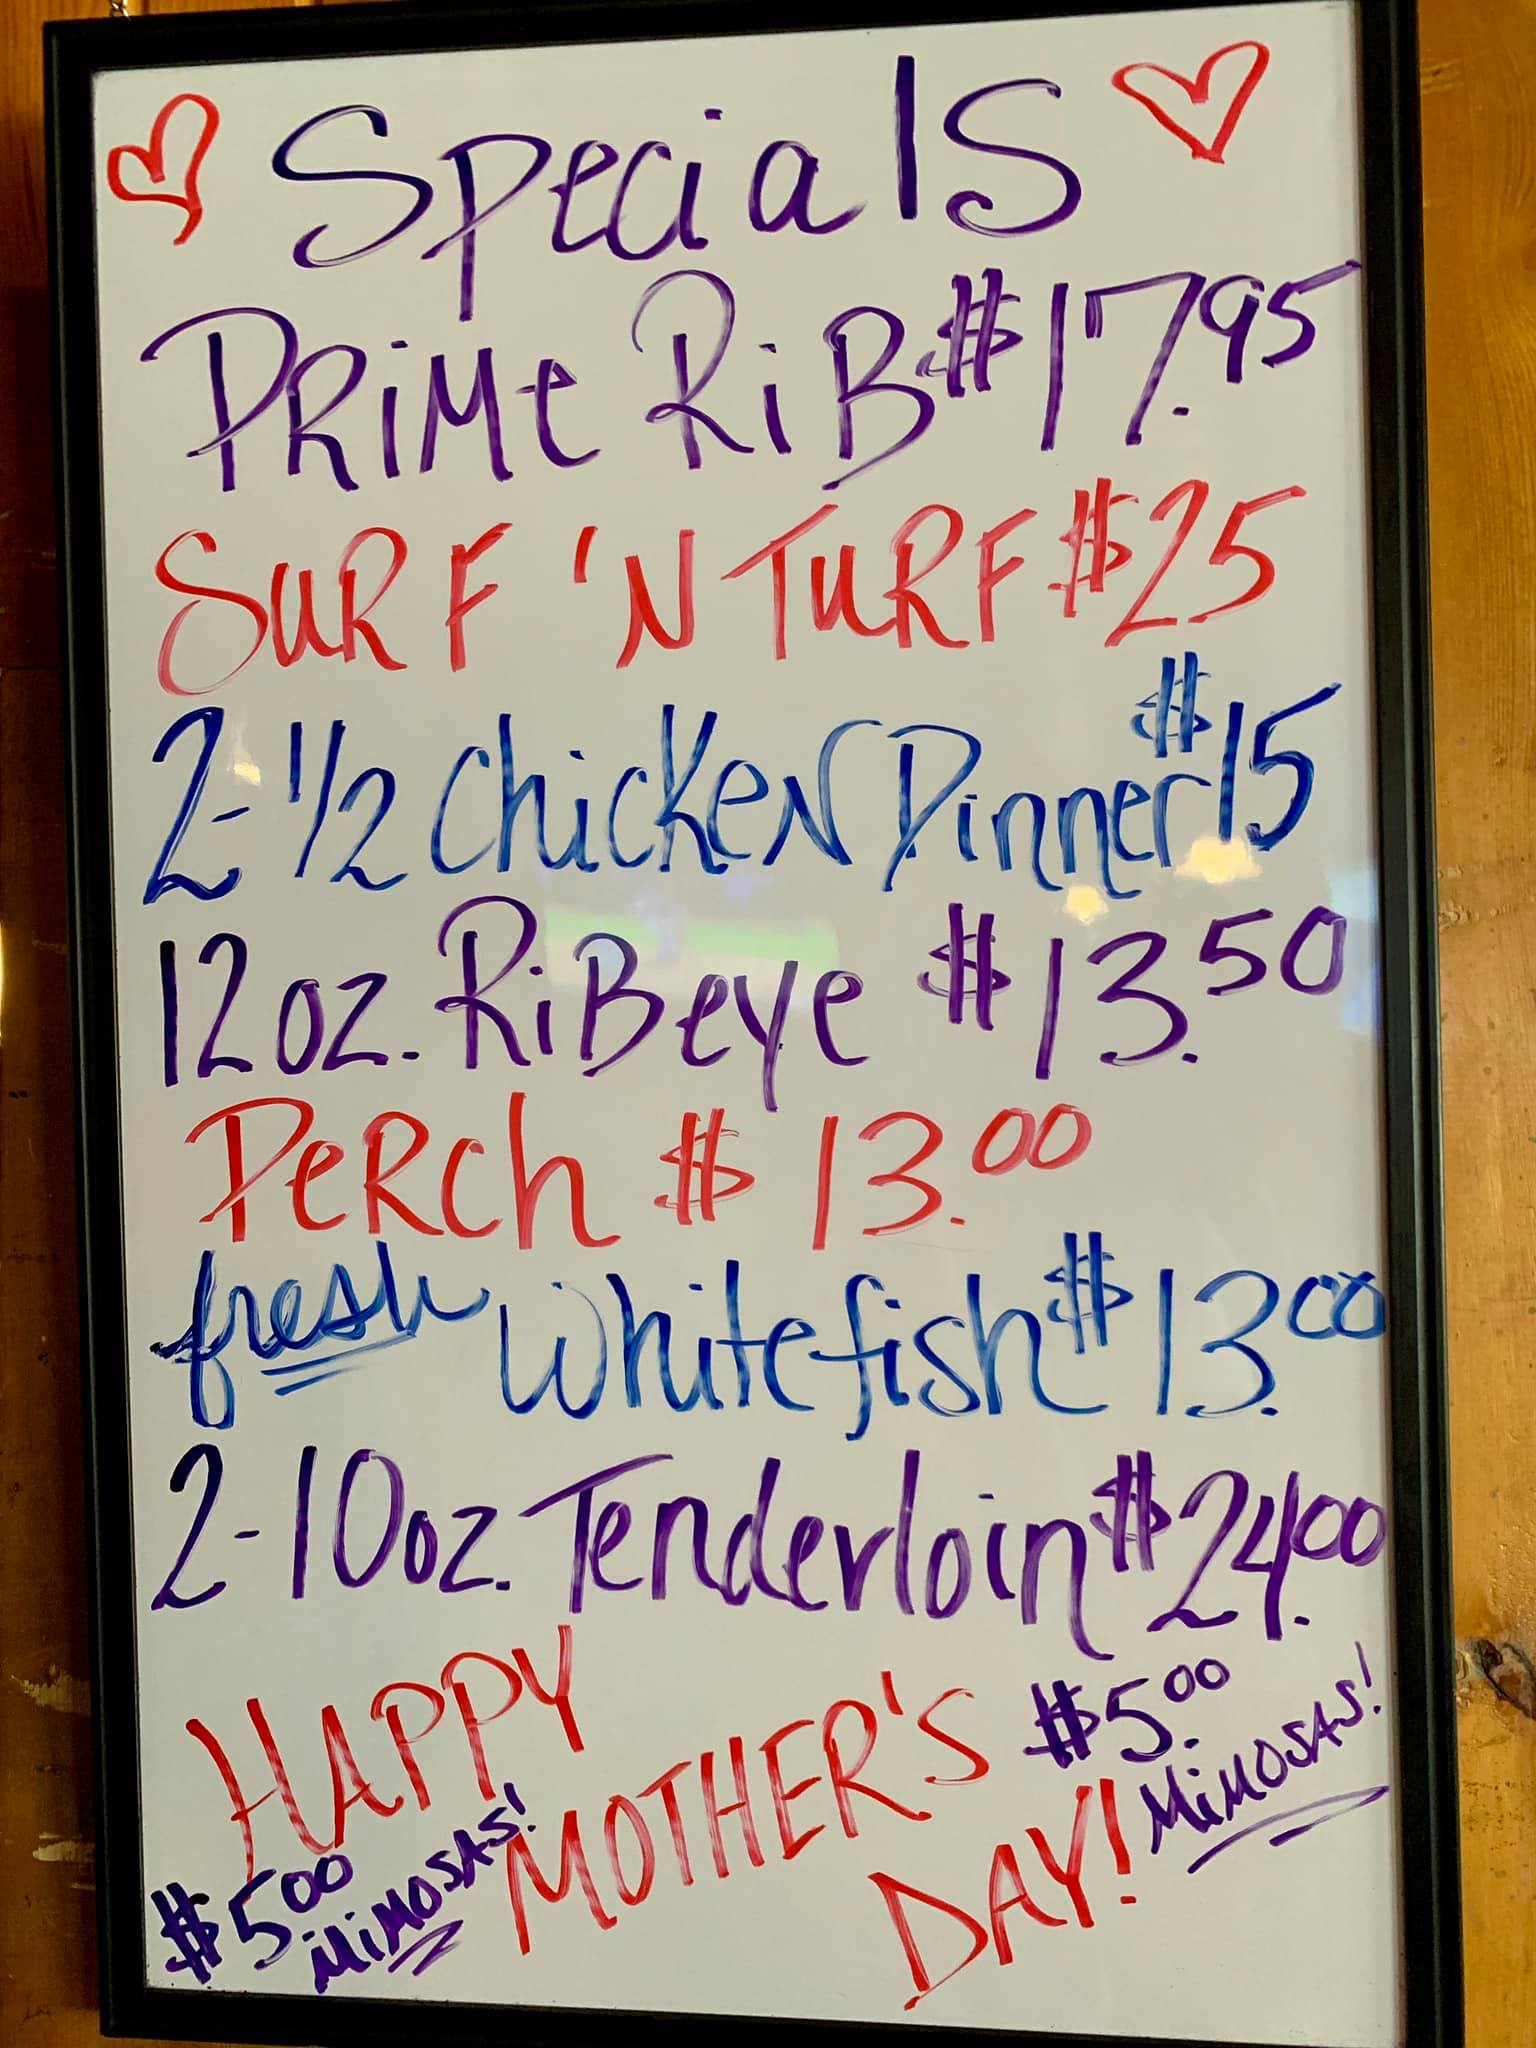 Specials
PRiMe RiB $17.95
SuRF 'N TuRF $25
2-1/2 Chicken Dinner $15
12 oz. RiBeye $13.50
PeRch $13.00
fresh Whitefish $13.00
2-10oz. Tenderloin $24.00
HAPPY
MOTHER'S
DAY!
$5.00
MiMOSAS!
$5.00
MiMOSAS!